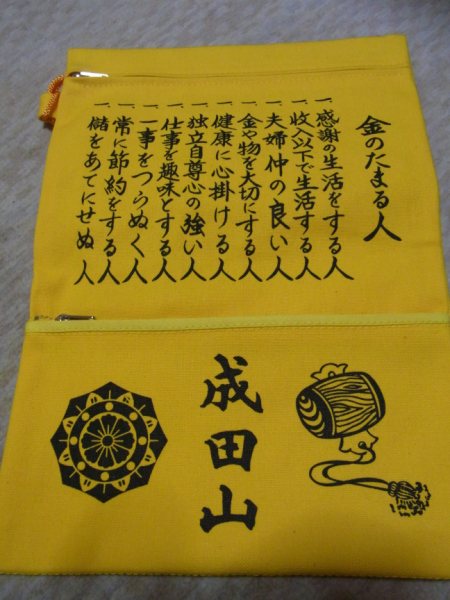 金のたまる人
一、感謝の生活をする人
一、収入以下で生活する人
一、夫婦仲の良い人
一、金や物を大切にする人
一、健康に心掛ける人
一、独立自尊心の強い人
一、仕事を趣味とする人
一、一事をつらぬく人
一、常に節約をする人
一、儲をあてにせぬ人
成田山